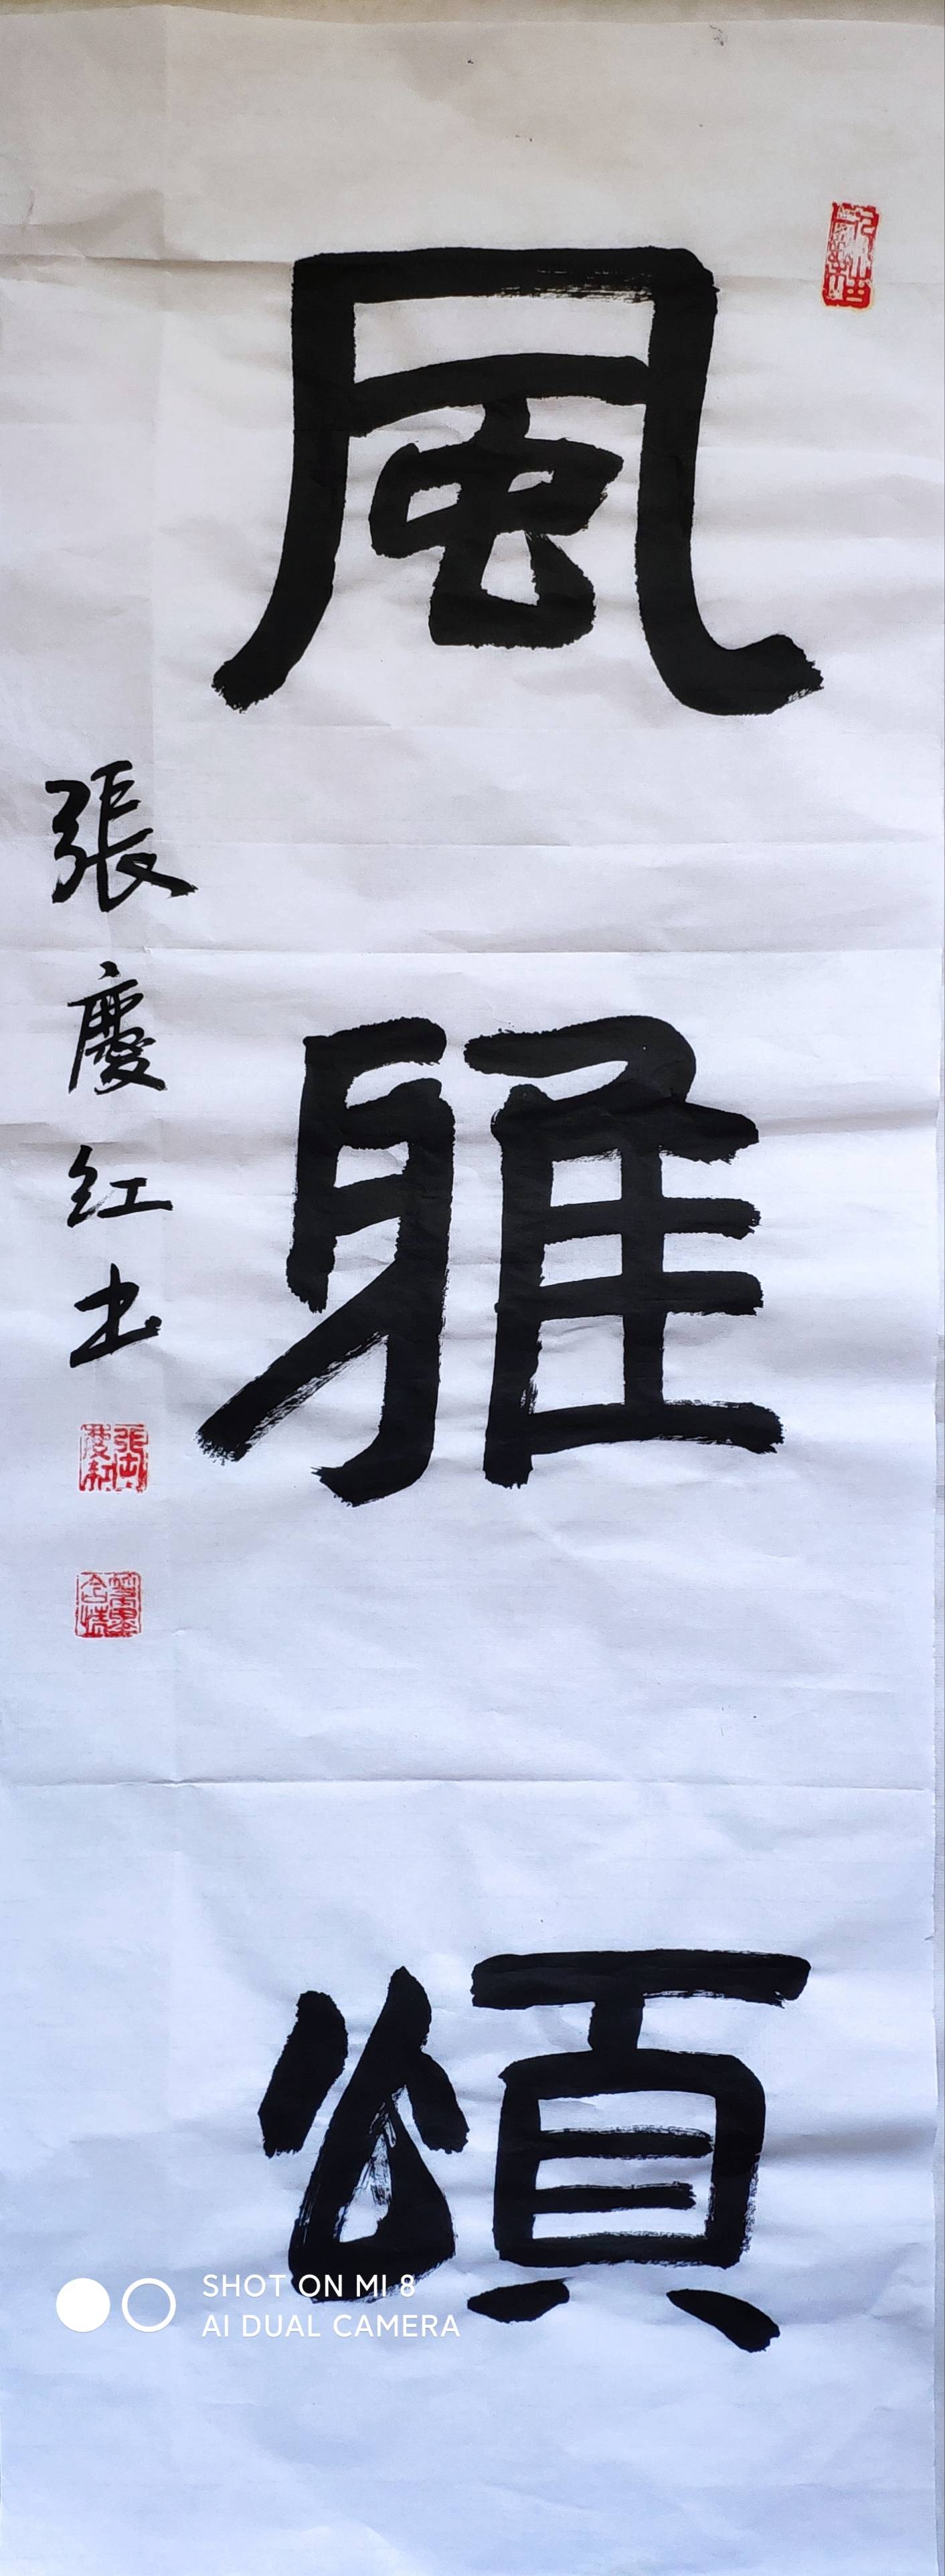 風雅頌
張慶红书
張慶紅印
SHOT ON MI 8
AI DUAL CAMERA